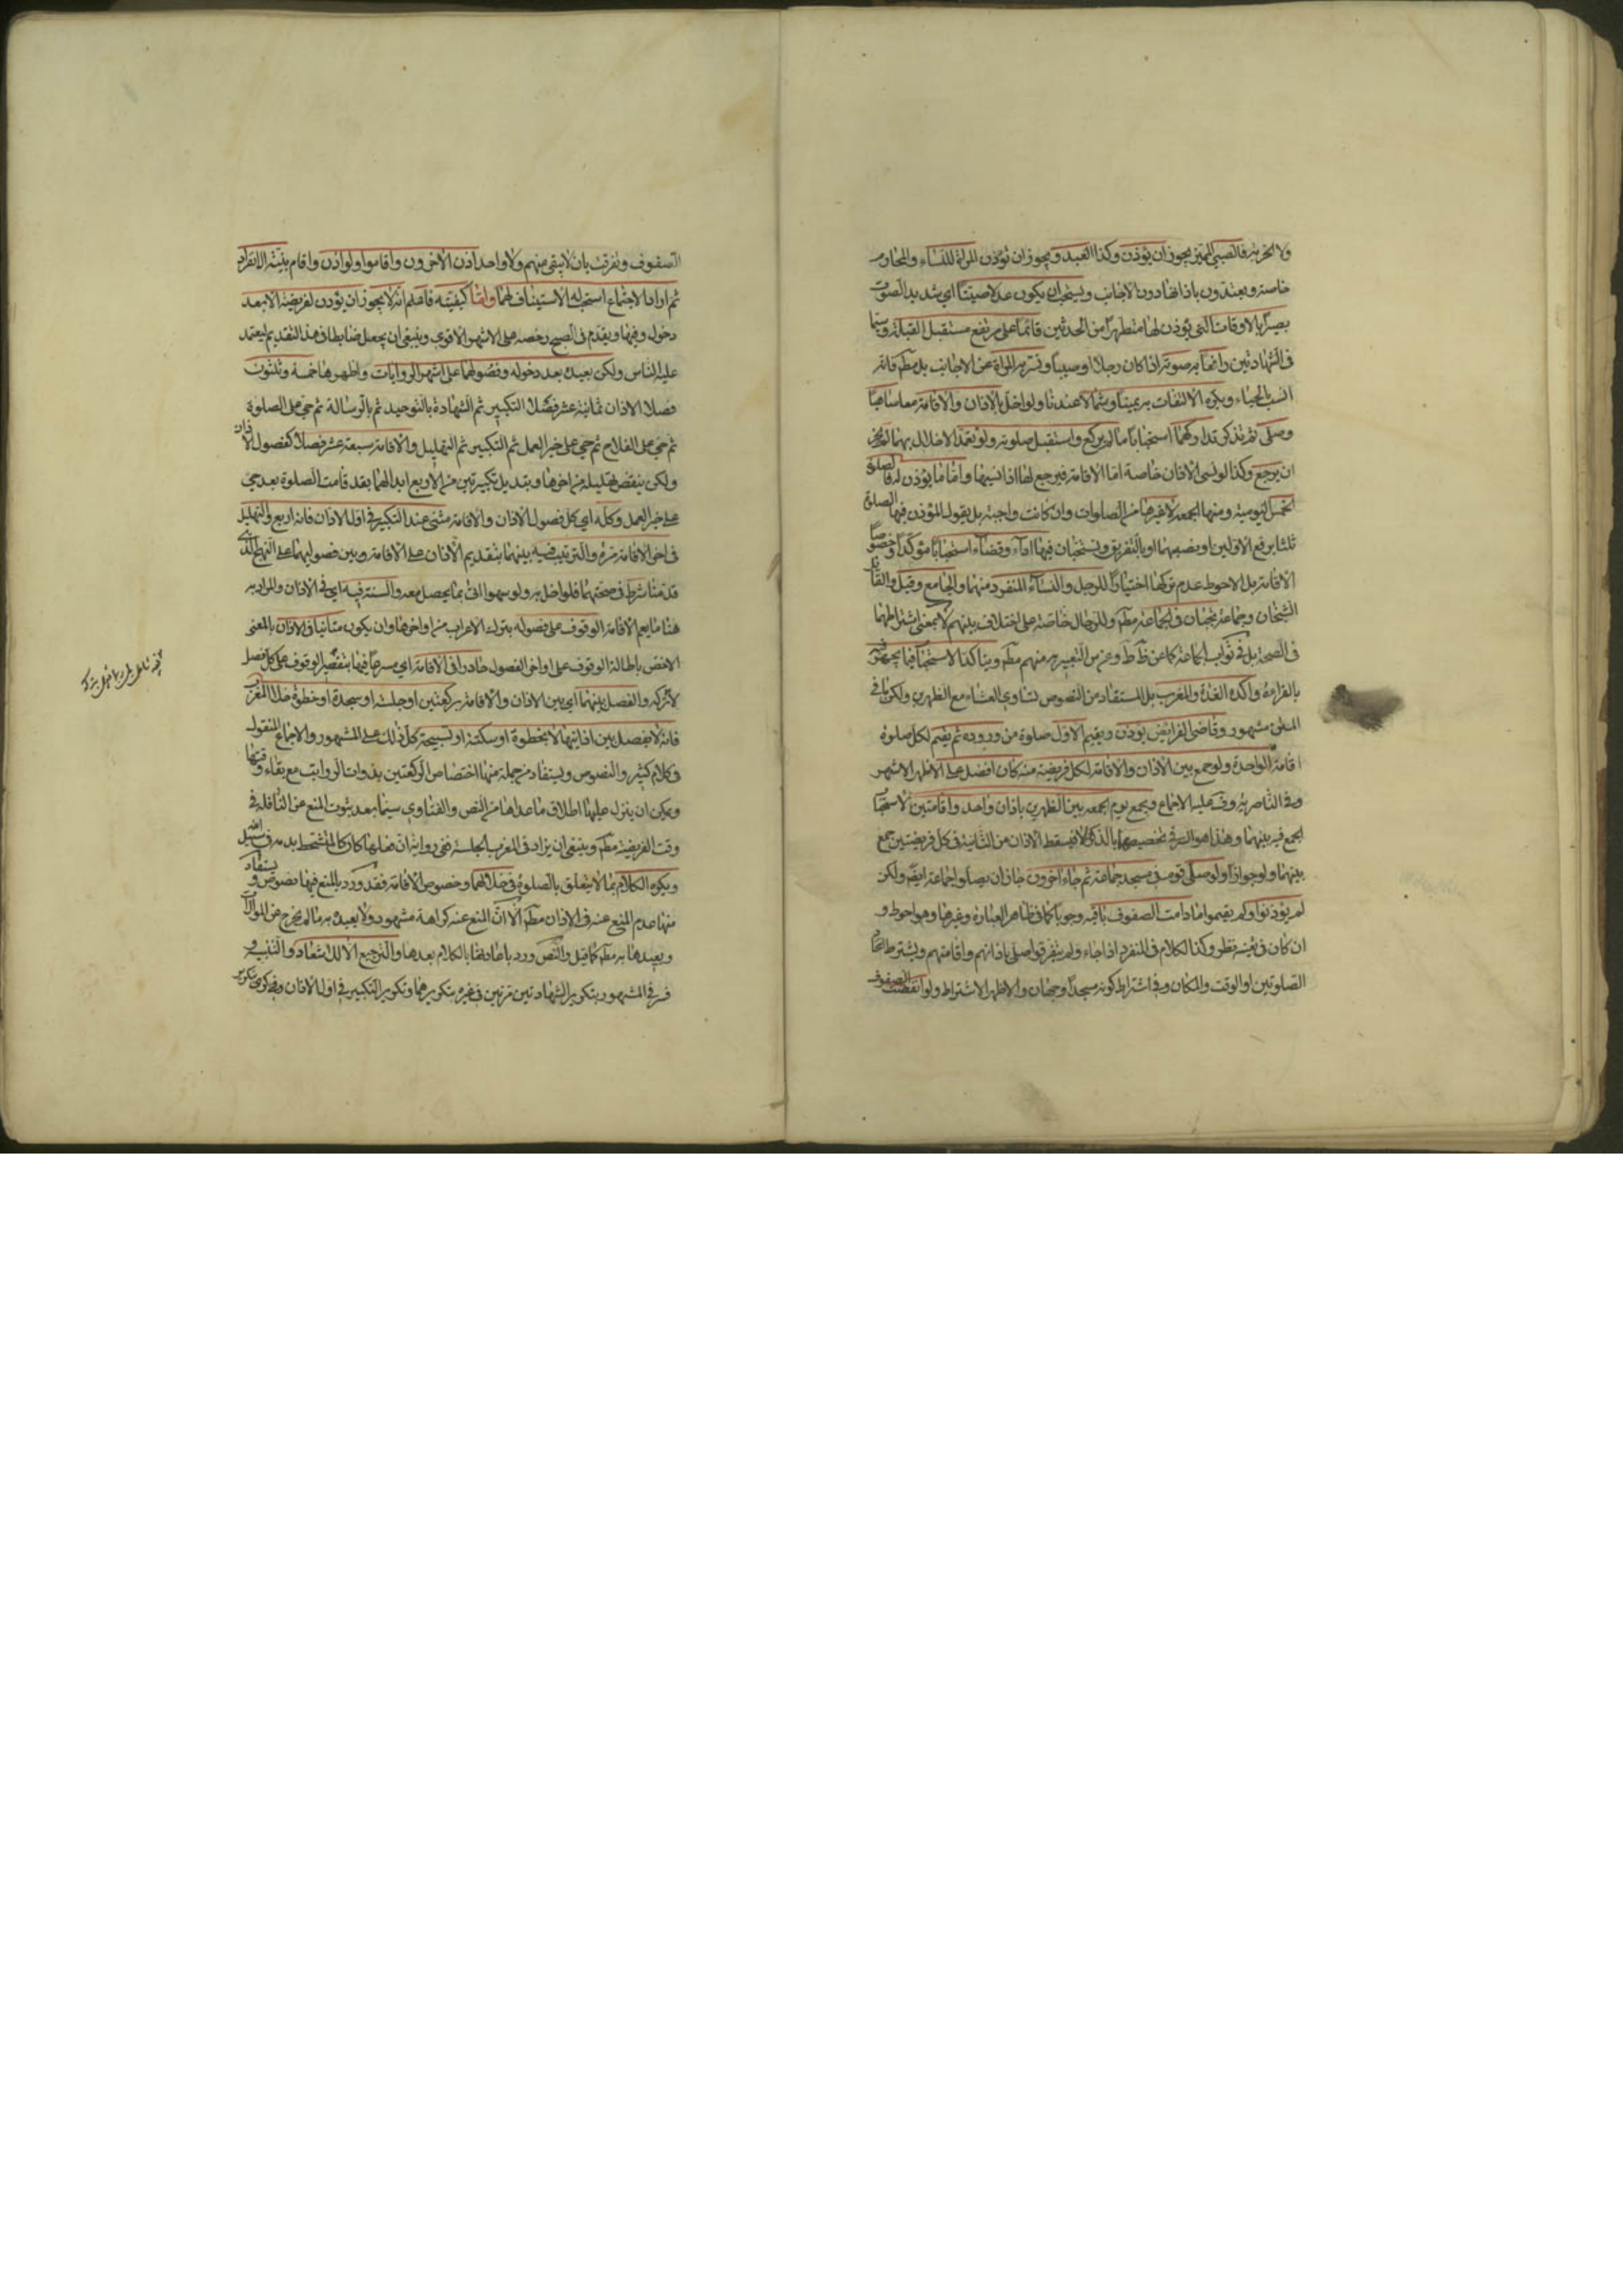 ولا الحرية فالصبي المميز يجوز ان يؤذن وكذا العبد ويجوز ان تؤذن المراة للنساء والمحارم
خاصة ويعتدون باذانها دون الاجانب ويستحب ان يكون عدلا صيتا اي شديد الصوت
بصيرا بالاوقات التي يؤذن لها متطهرا من الحدثين قائما على مرتفع مستقبل القبلة وسيما
في الشهادتين رافعا به صوته اذا كان رجلا او صبيا وتسر به المراة عن الاجانب بل مطم فانه
انسب بالحياء ويكره الالتفات به يمينا وشمالا عندنا ولو اخل بالاذان والاقامة معا ساهيا
وصلى ثم تذكر تداركهما استحبابا ما لم يركع واستقبل صلوته ولو تعمد الاخلال بهما لم يجز
ان يرجع وكذا لو نسي الاذان خاصة اما الاقامة فيرجع لها اذا نسيها واما ما يؤذن له فالصلوة
الخمس اليومية ومنها الجمعة لا غيرها من الصلوات وان كانت واجبة بل يقول المؤذن فيها الصلوة
ثلثا برفع الاولين او بنصبهما او بالتفريق ويستحبان فيها اداء وقضاء استحبابا مؤكدا وخصوصا
الاقامة بل الاحوط عدم تركها اختيارا للرجل والنساء المنفرد منهما والجامع وقيل والقائل
الشيخان وجماعة يجبان في الجماعة مطم وللرجال خاصة على اختلاف بينهم لا بمعنى اشتراطهما
في الصحة بل في ثواب الجماعة كما عن ط وغيره من التعبير به منهم مطم ويتاكد الاستحباب فيما يجهر فيه
بالقراءة واكده الغداة والمغرب بل المستفاد من النصوص تساوي العشاء مع الظهرين ولكن ما في
المتن مشهور وقاضي الفرايض يؤذن ويقيم لاول صلوة من وروده ثم يقيم لكل صلوة
اقامة واحدة ولو جمع بين الاذان والاقامة لكل فريضة منه كان افضل على الاظهر الاشهر
وفي الناصرية وف عليه الاجماع ويجمع يوم الجمعة بين الظهرين باذان واحد واقامتين لاستحباب
الجمع فيه بينهما وهذا هو السر في تخصيصها بالذكر والا فيسقط الاذان من الثانية في كل فريضتين جمع
بينهما ولو جوازا ولو صلى قوم في مسجد جماعة ثم جاء آخرون جاز ان يصلوا جماعة ايضا ولكن
لم يؤذنوا ولم يقيموا ما دامت الصفوف باقية وجوبا كما في ظاهر العبارة وغيرها وهو احوط و
ان كان في تعينه نظر وكذا الكلام في المنفرد اذا جاء ولم يتفرقوا صلى باذانهم واقامتهم ويشترط اتحاد
الصلوتين او الوقت والمكان وفي اشتراط كونه مسجدا وجهان والاظهر الاشتراط ولو انفضت الصفوف
الصفوف وتفرقت بان لا يبقى منهم ولا واحد اذن الآخرون واقاموا ولو اذن واقام بنية الانفراد
ثم اراد الاجتماع استحب له الاستيناف لهما واما كيفيته فاعلم انه لا يجوز ان يؤذن لفريضة الا بعد
دخول وقتها ويقدم في الصبح رخصة على الاشهر الاقوى وينبغي ان يجعل ضابطا في هذا التقديم ليعتمد
عليه الناس ولكن يعيده بعد دخوله وفصولهما على اشهر الروايات واظهرها خمسة وثلثون
فصلا الاذان ثمانية عشر فصلا التكبير ثم الشهادة بالتوحيد ثم بالرسالة ثم حي على الصلوة
ثم حي على الفلاح ثم حي على خير العمل ثم التكبير ثم التهليل والاقامة سبعة عشر فصلا كفصول الاذان
ولكن ينقص تهليلة من اخرها وبتبديل تكبيرتين من الاربع ابدالهما بقد قامت الصلوة بعد حي
على خير العمل وكله اي كل فصول الاذان والاقامة مثنى عندا التكبير في اول الاذان فانه اربع والتهليل
في اخر الاقامة مرة والترتيب فيه بينهما بتقديم الاذان على الاقامة وبين فصولهما على النهج الذي
قدمنا شرط في صحتهما فلو اخل به ولو سهوا اتى بما يحصل معه والسنة فيه اي في الاذان والمراد به
هنا ما يعم الاقامة الوقوف على فصوله بترك الاعراب من اواخرها وان يكون متانيا في الاذان بالمعنى
الاخص باطالة الوقوف على اواخر الفصول حادرا في الاقامة اي مسرعا فيها بتقصير الوقوف على كل فصل
لا تركه والفصل بينهما اي بين الاذان والاقامة بركعتين او جلسة او سجدة او خطوة خلا المغرب
فانه لا يفصل بين اذانيها الا بخطوة او سكتة او تسبيحة كل ذلك على المشهور والاجماع المنقول
في كلام كثير والنصوص ويستفاد من جملة منها اختصاص الركعتين بذوات الرواتب مع بقاء وقتها
ويمكن ان ينزل عليها اطلاق ما عداها من النص والفتاوي سيما بعد ثبوت المنع عن النافلة في
وقت الفريضة مطم وينبغي ان يزاد في المغرب الجلسة ففي رواية ان فعلها كان كالمتشحط بدمه في سبيل الله
ويكره الكلام بما لا يتعلق بالصلوة في خلالهما وخصوص الاقامة فقد ورد بالمنع فيها نصوص ويستفاد
منها عدم المنع عنه في الاذان مطم الا ان المنع عنه كراهة مشهور ولا يعيده به ما لم يخرج عن الموالاة
ويعيدها به مطم كما قيل والنص ورد باعادتها بالكلام بعدها والترجيع الا للاشعار والتنبيه و
فسر في المشهور بتكوير الشهادتين مرتين في غيره بتكويرهما وتكوير التكبير في اول الاذان وفي كره بتكرير